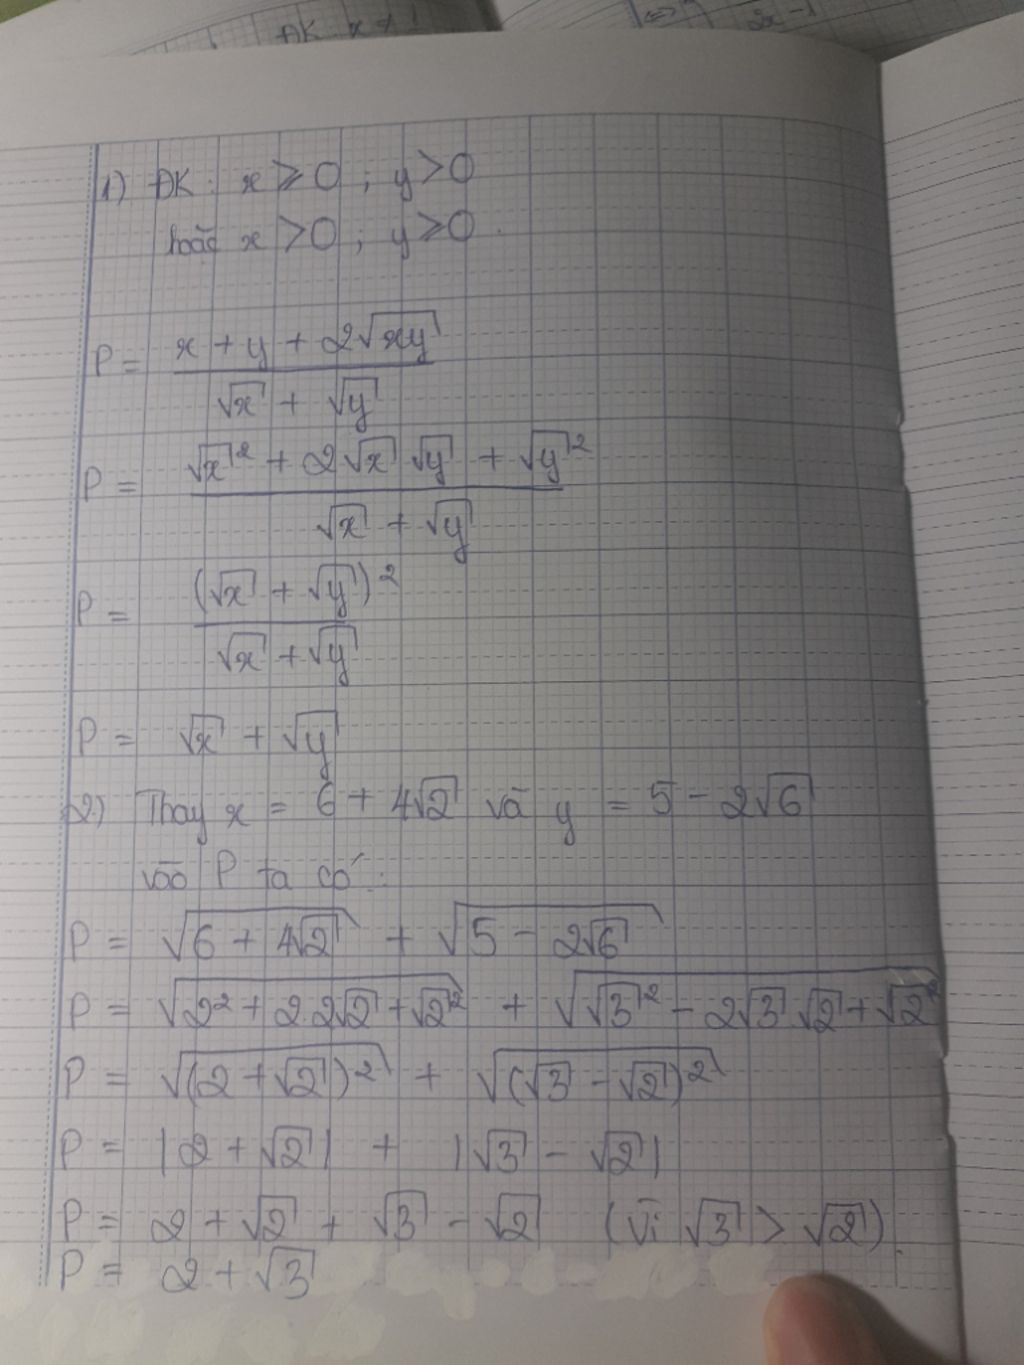 ĐK x ≠ 1
2x - 1
1) ĐK: x ≥ 0 ; y > 0
hoặc x > 0 ; y ≥ 0.
P = (x + y + 2√(xy)) / (√x + √y)
P = (√x² + 2√x √y + √y²) / (√x + √y)
P = (√x + √y)² / (√x + √y)
P = √x + √y
2) Thay x = 6 + 4√2 và y = 5 - 2√6
vào P ta có:
P = √(6 + 4√2) + √(5 - 2√6)
P = √(2² + 2.2√2 + √2²) + √(√3² - 2√3 √2 + √2²)
P = √((2 + √2)²) + √((√3 - √2)²)
P = |2 + √2| + |√3 - √2|
P = 2 + √2 + √3 - √2 (Vì √3 > √2).
P = 2 + √3